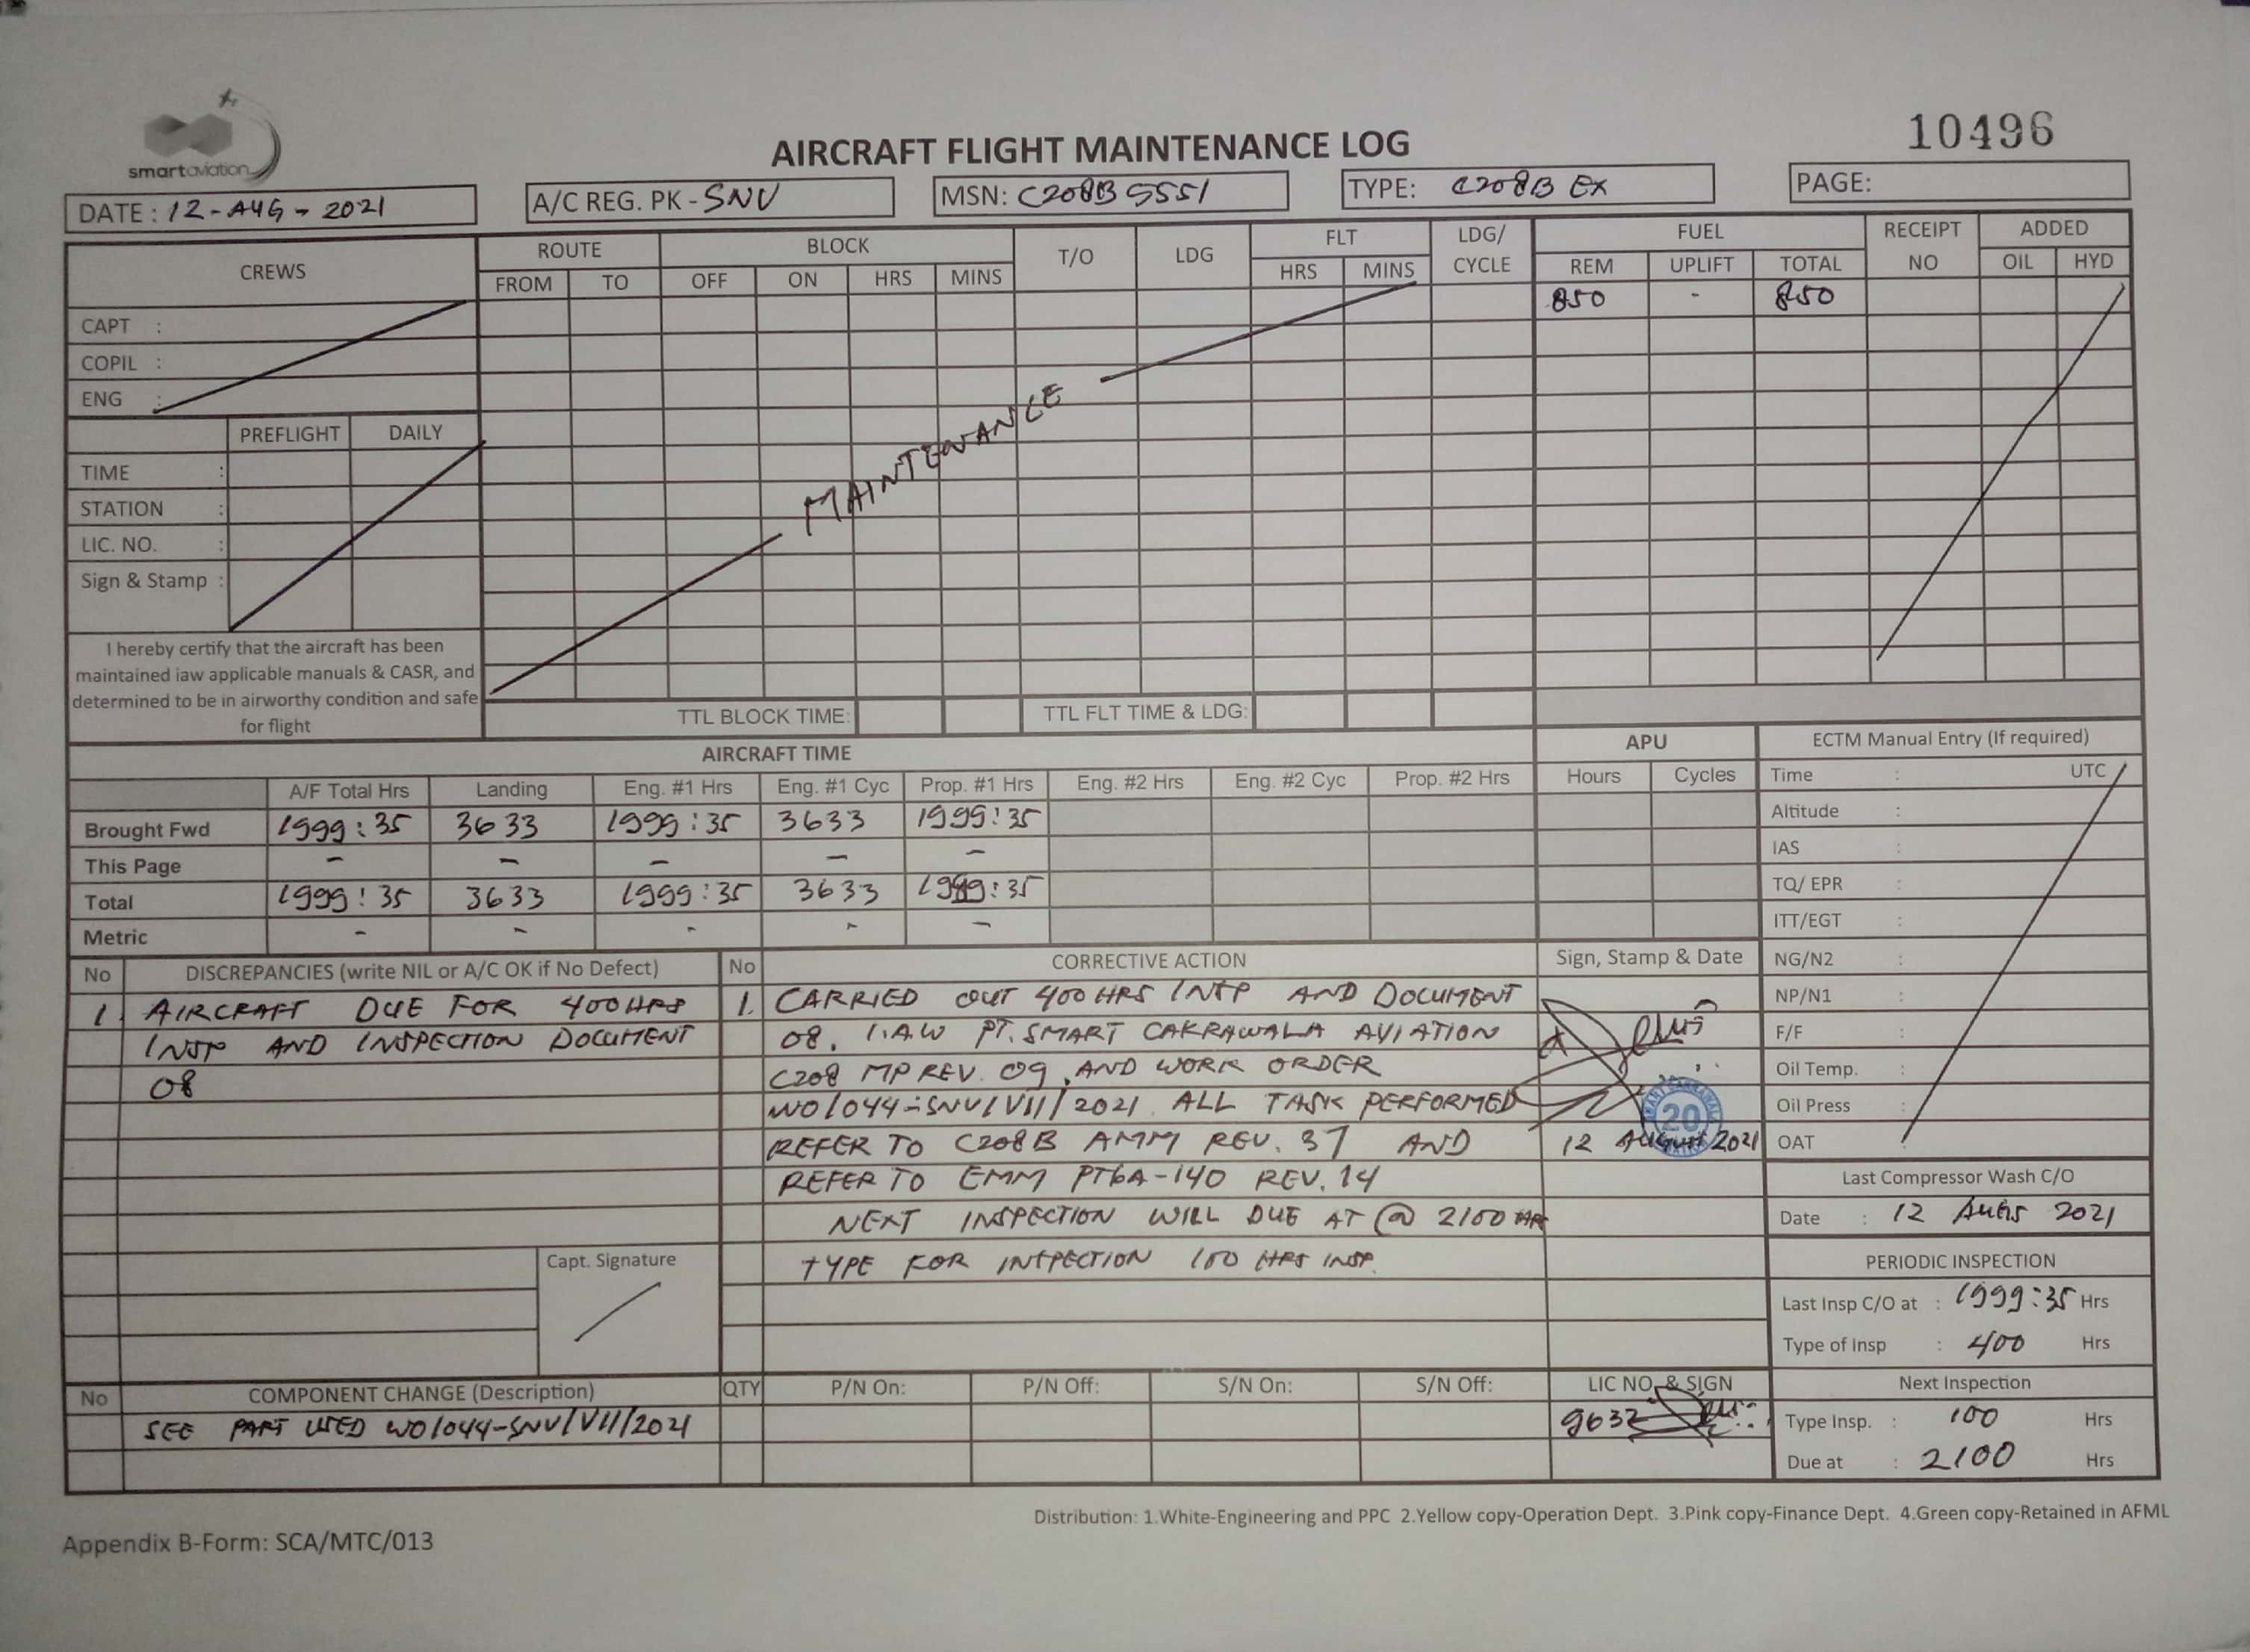 smartaviation
AIRCRAFT FLIGHT MAINTENANCE LOG
10496
DATE : 12-AUG-2021
A/C REG. PK - SNV
MSN: C208B 5551
TYPE: C208B EX
PAGE:
CREWS
ROUTE
BLOCK
T/O
LDG
FLT
LDG/
CYCLE
FUEL
RECEIPT
NO
ADDED
FROM TO OFF ON HRS MINS HRS MINS REM UPLIFT TOTAL OIL HYD
850 - 850
CAPT :
COPIL :
ENG :
MAINTENANCE
PREFLIGHT DAILY
TIME :
STATION :
LIC. NO. :
Sign & Stamp :
I hereby certify that the aircraft has been
maintained iaw applicable manuals & CASR, and
determined to be in airworthy condition and safe
for flight
TTL BLOCK TIME: TTL FLT TIME & LDG:
AIRCRAFT TIME
APU
A/F Total Hrs Landing Eng. #1 Hrs Eng. #1 Cyc Prop. #1 Hrs Eng. #2 Hrs Eng. #2 Cyc Prop. #2 Hrs Hours Cycles
Brought Fwd 1999:35 3633 1999:35 3633 1999:35
This Page - - - - -
Total 1999:35 3633 1999:35 3633 1999:35
Metric - - - - -
ECTM Manual Entry (If required)
Time : UTC
Altitude :
IAS :
TQ/ EPR :
ITT/EGT :
NG/N2 :
NP/N1 :
F/F :
Oil Temp. :
Oil Press :
OAT :
No DISCREPANCIES (write NIL or A/C OK if No Defect)
1. AIRCRAFT DUE FOR 400HRS
INSP AND INSPECTION DOCUMENT
08
Capt. Signature
No CORRECTIVE ACTION
1. CARRIED OUT 400 HRS INSP AND DOCUMENT
08. I.A.W PT. SMART CAKRAWALA AVIATION
C208 MP REV. 09, AND WORK ORDER
WO/044-SNV/VII/2021. ALL TASK PERFORMED
REFER TO C208B AMM REV. 37 AND
REFER TO EMM PT6A-140 REV. 14
NEXT INSPECTION WILL DUE AT @ 2100 HR
TYPE FOR INSPECTION 100 HRS INSP.
Sign, Stamp & Date
20
12 AUGUST 2021
Last Compressor Wash C/O
Date : 12 AUGS 2021
PERIODIC INSPECTION
Last Insp C/O at : 1999:35 Hrs
Type of Insp : 400 Hrs
Next Inspection
Type Insp. : 100 Hrs
Due at : 2100 Hrs
No COMPONENT CHANGE (Description) QTY P/N On: P/N Off: S/N On: S/N Off: LIC NO. & SIGN
SEE PART USED WO/044-SNV/VII/2021 9632
Distribution: 1.White-Engineering and PPC 2.Yellow copy-Operation Dept. 3.Pink copy-Finance Dept. 4.Green copy-Retained in AFML
Appendix B-Form: SCA/MTC/013